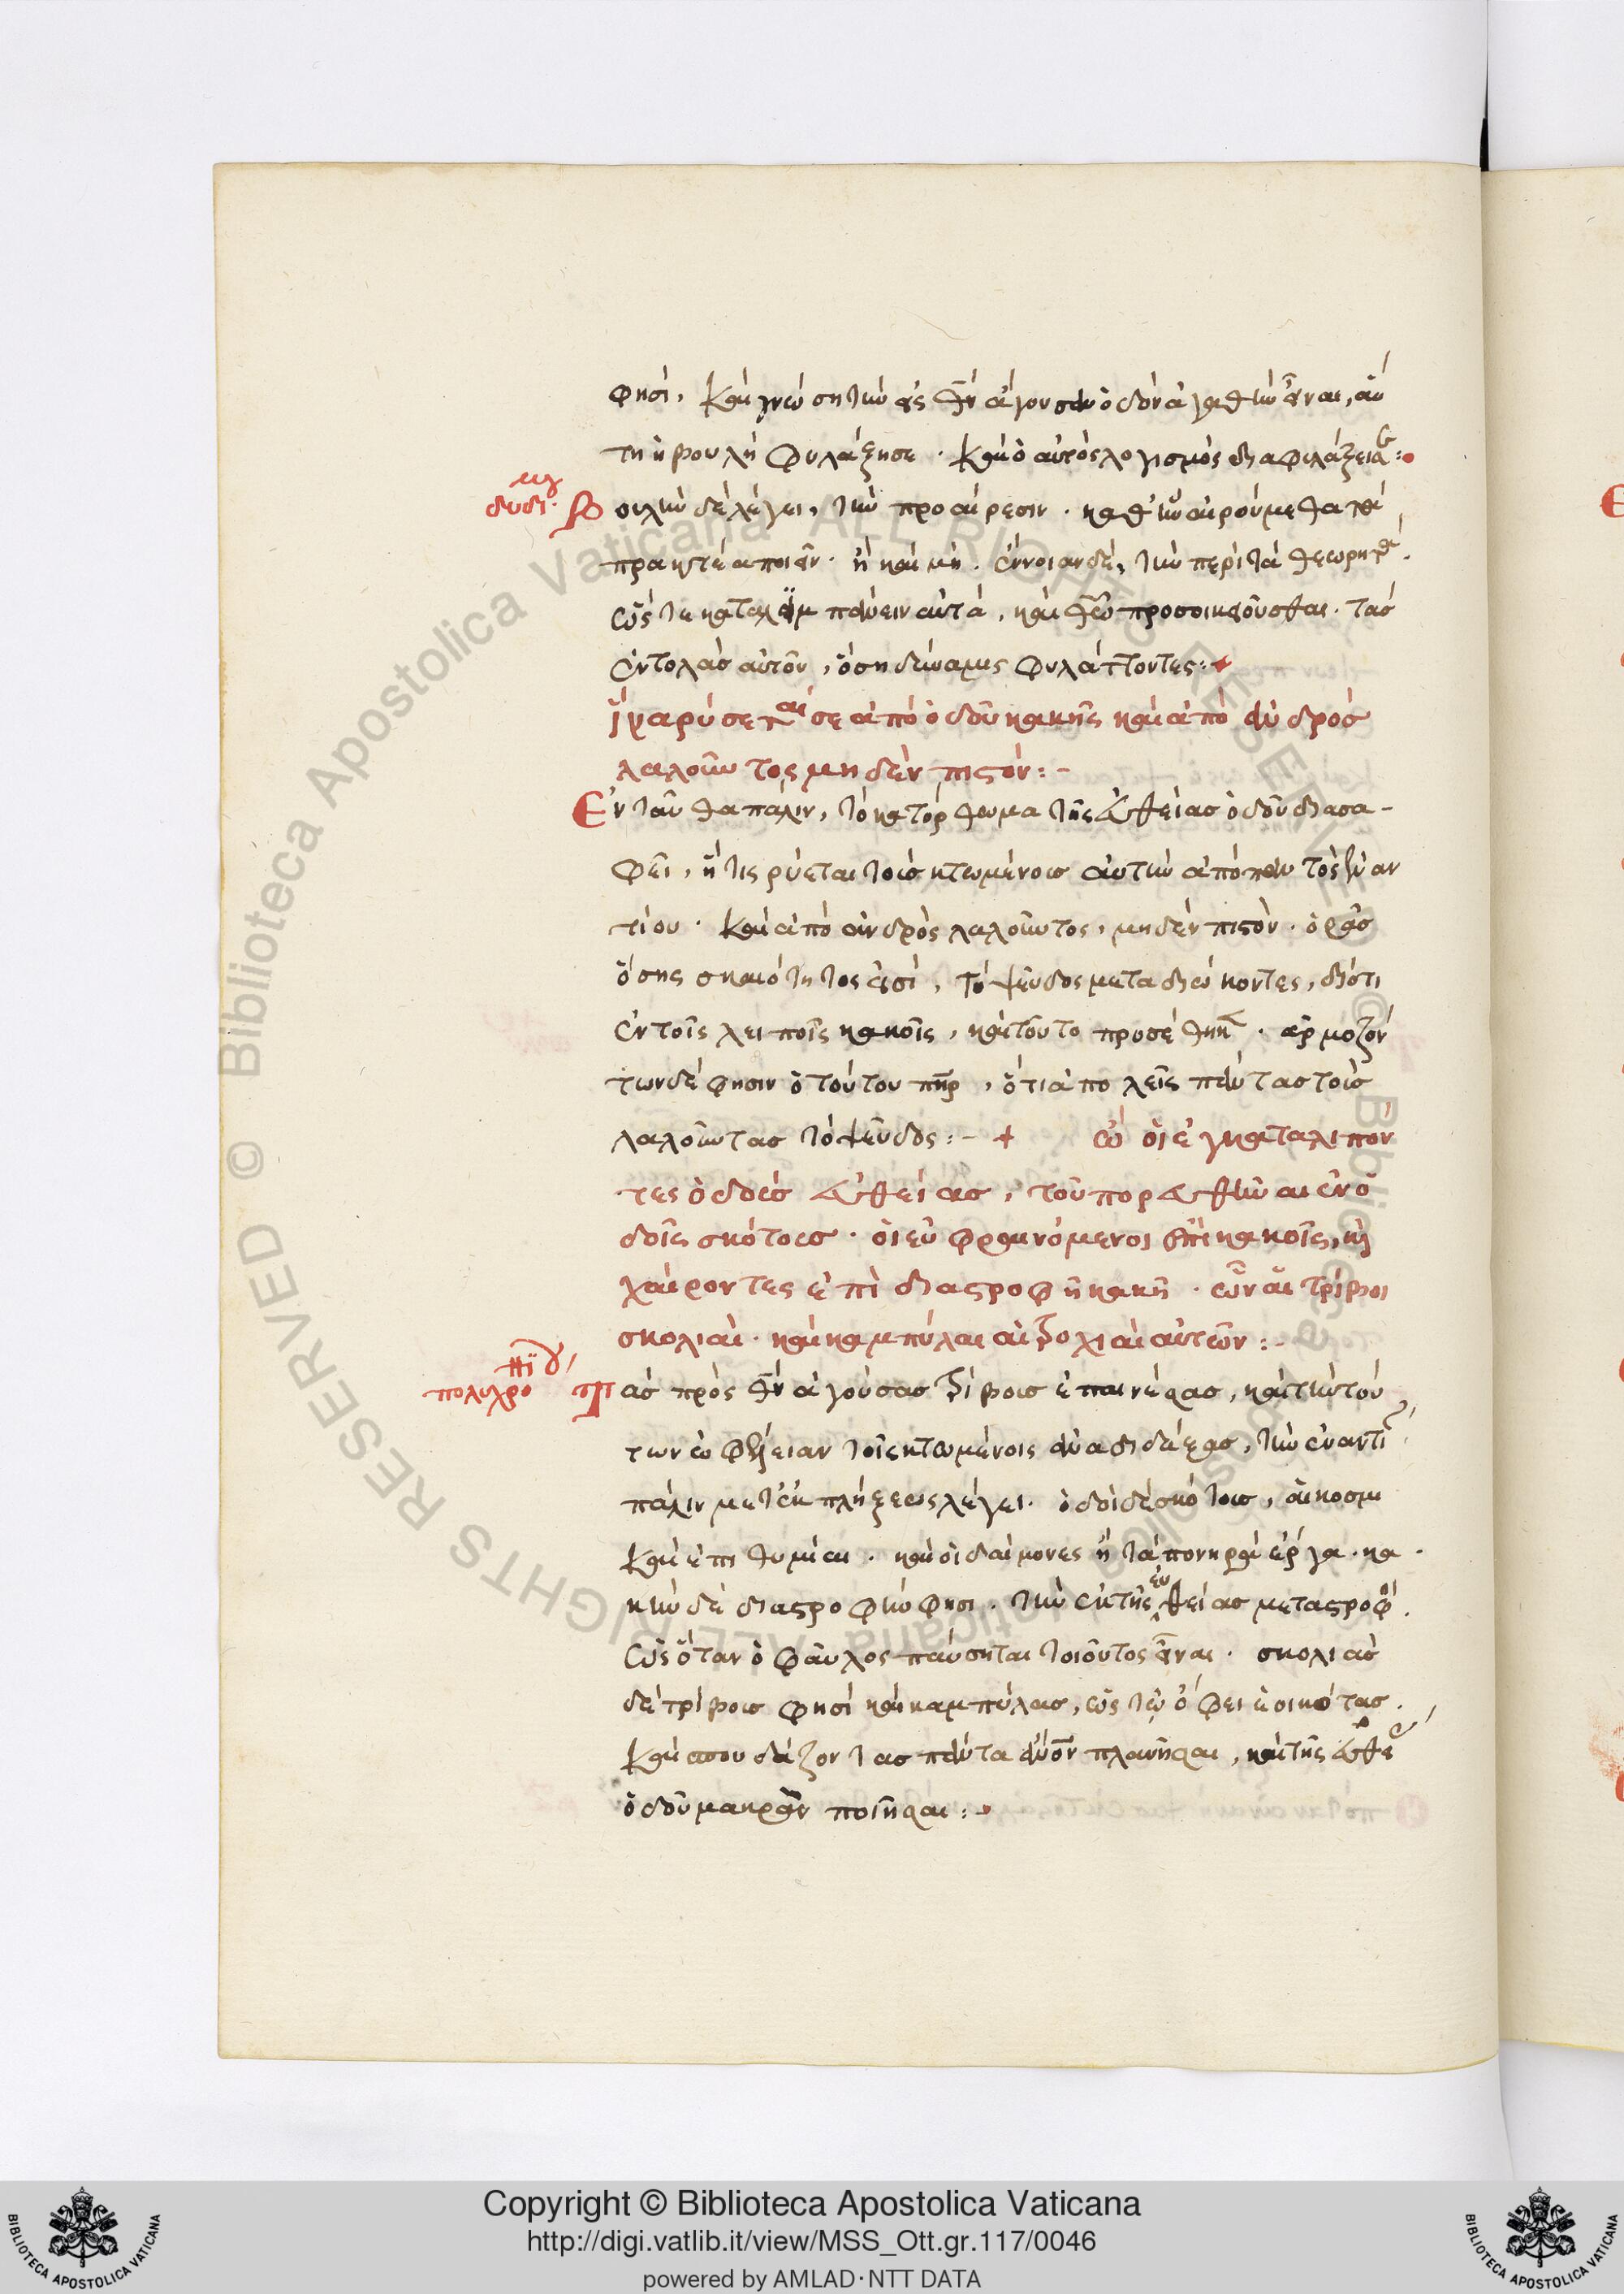 φησί, καὶ γνώσῃ τὴν εἰς θν ἄγουσαν ὁδὸν ἀγαθὴν εἶναι, αὕ
τη ἡ βουλὴ φυλάξῃ σε. καὶ ὁ αὐτὸς λογισμὸς διαφυλάξει
διδυ. βουλὴν δὲ λέγει, τὴν προαίρεσιν. καθ' ἣν αἱρούμεθα τὰ
πρακτέα ποιεῖν. ἢ καὶ μή. ἔννοιαν δὲ, τὴν περὶ τὰ θεωρητὰ.
ὥστε καταλαμπάνειν αὐτά, καὶ θεῷ προσοικειοῦσθαι. τὰς
ἐντολὰς αὐτοῦ, ὅση δύναμις φυλάττοντες:
ἵνα ρύσεταί σε ἀπὸ ὁδοῦ κακῆς καὶ ἀπὸ ἀνδρὸς
λαλοῦντος μηδὲν πιστόν:-
Ἐνταῦθα πάλιν, τὸ κατόρθωμα τῆς εὐθείας ὁδοῦ διασα-
φεῖ, ἥτις ρύεται τοὺς κτωμένους αὐτὴν ἀπὸ παντὸς ἐναν
τίου. καὶ ἀπὸ ἀνδρὸς λαλοῦντος, μηδὲν πιστόν. ὁρᾷς
ὅσης σκαιότητός εἰσι, τὸ ψεῦδος μεταδιώκοντες, διότι
ἐν τοῖς λοιποῖς κακοῖς, καὶ τοῦτο προσέθηκε. ἁρμόζον
των δέ φησιν ὁ τούτου πηρ, ὅτι ἀπολεῖς πάντας τοὺς
λαλοῦντας τὸ ψεῦδος:- + ὦ οἱ ἐγκαταλιπόν
τες ὁδοὺς εὐθείας, τοῦ πορευθῆναι ἐν ὁ
δοῖς σκότους. οἱ εὐφραινόμενοι ἐπὶ κακοῖς, καὶ
χαίροντες ἐπὶ διαστροφῇ κακῇ. ὧν αἱ τρίβοι
σκολιαί. καὶ καμπύλαι αἱ τροχιαὶ αὐτῶν:-
πολυχρο Τὰς πρὸς θν ἀγούσας τρίβους ἐπαινέσας, καὶ τὴν τού
των ὠφέλειαν τοῖς κτωμένοις ἀναδιδάξας, τὴν ἐναντί
πάλιν μετ' ἐκπλήξεως λέγει. ὁδοὶ δὲ σκότους, αἱ κοσμι
καὶ ἐπιθυμίαι. καὶ οἱ δαίμονες ἢ τὰ πονηρὰ ἔργα. κα
κὴν δὲ διαστροφήν φησι. τὴν ἐκ τῆς εὐθείας μεταστροφὴ.
ὡς ὅταν ὁ φαῦλος παύσηται τοιοῦτος εἶναι. σκολιὰς
δὲ τρίβους φησὶ καὶ καμπύλας, ὡς τῷ ὄφει ἐοικότας.
καὶ σπουδάζοντας πάντα ἄνον πλανῆσαι, καὶ τῆς εὐθεί
ὁδοῦ μακρὰν ποιῆσαι:
Copyright © Biblioteca Apostolica Vaticana
http://digi.vatlib.it/view/MSS_Ott.gr.117/0046
powered by AMLAD·NTT DATA
BIBLIOTECA APOSTOLICA VATICANA
BIBLIOTECA APOSTOLICA VATICANA
Biblioteca Apostolica Vaticana ALL RIGHTS RESERVED ©